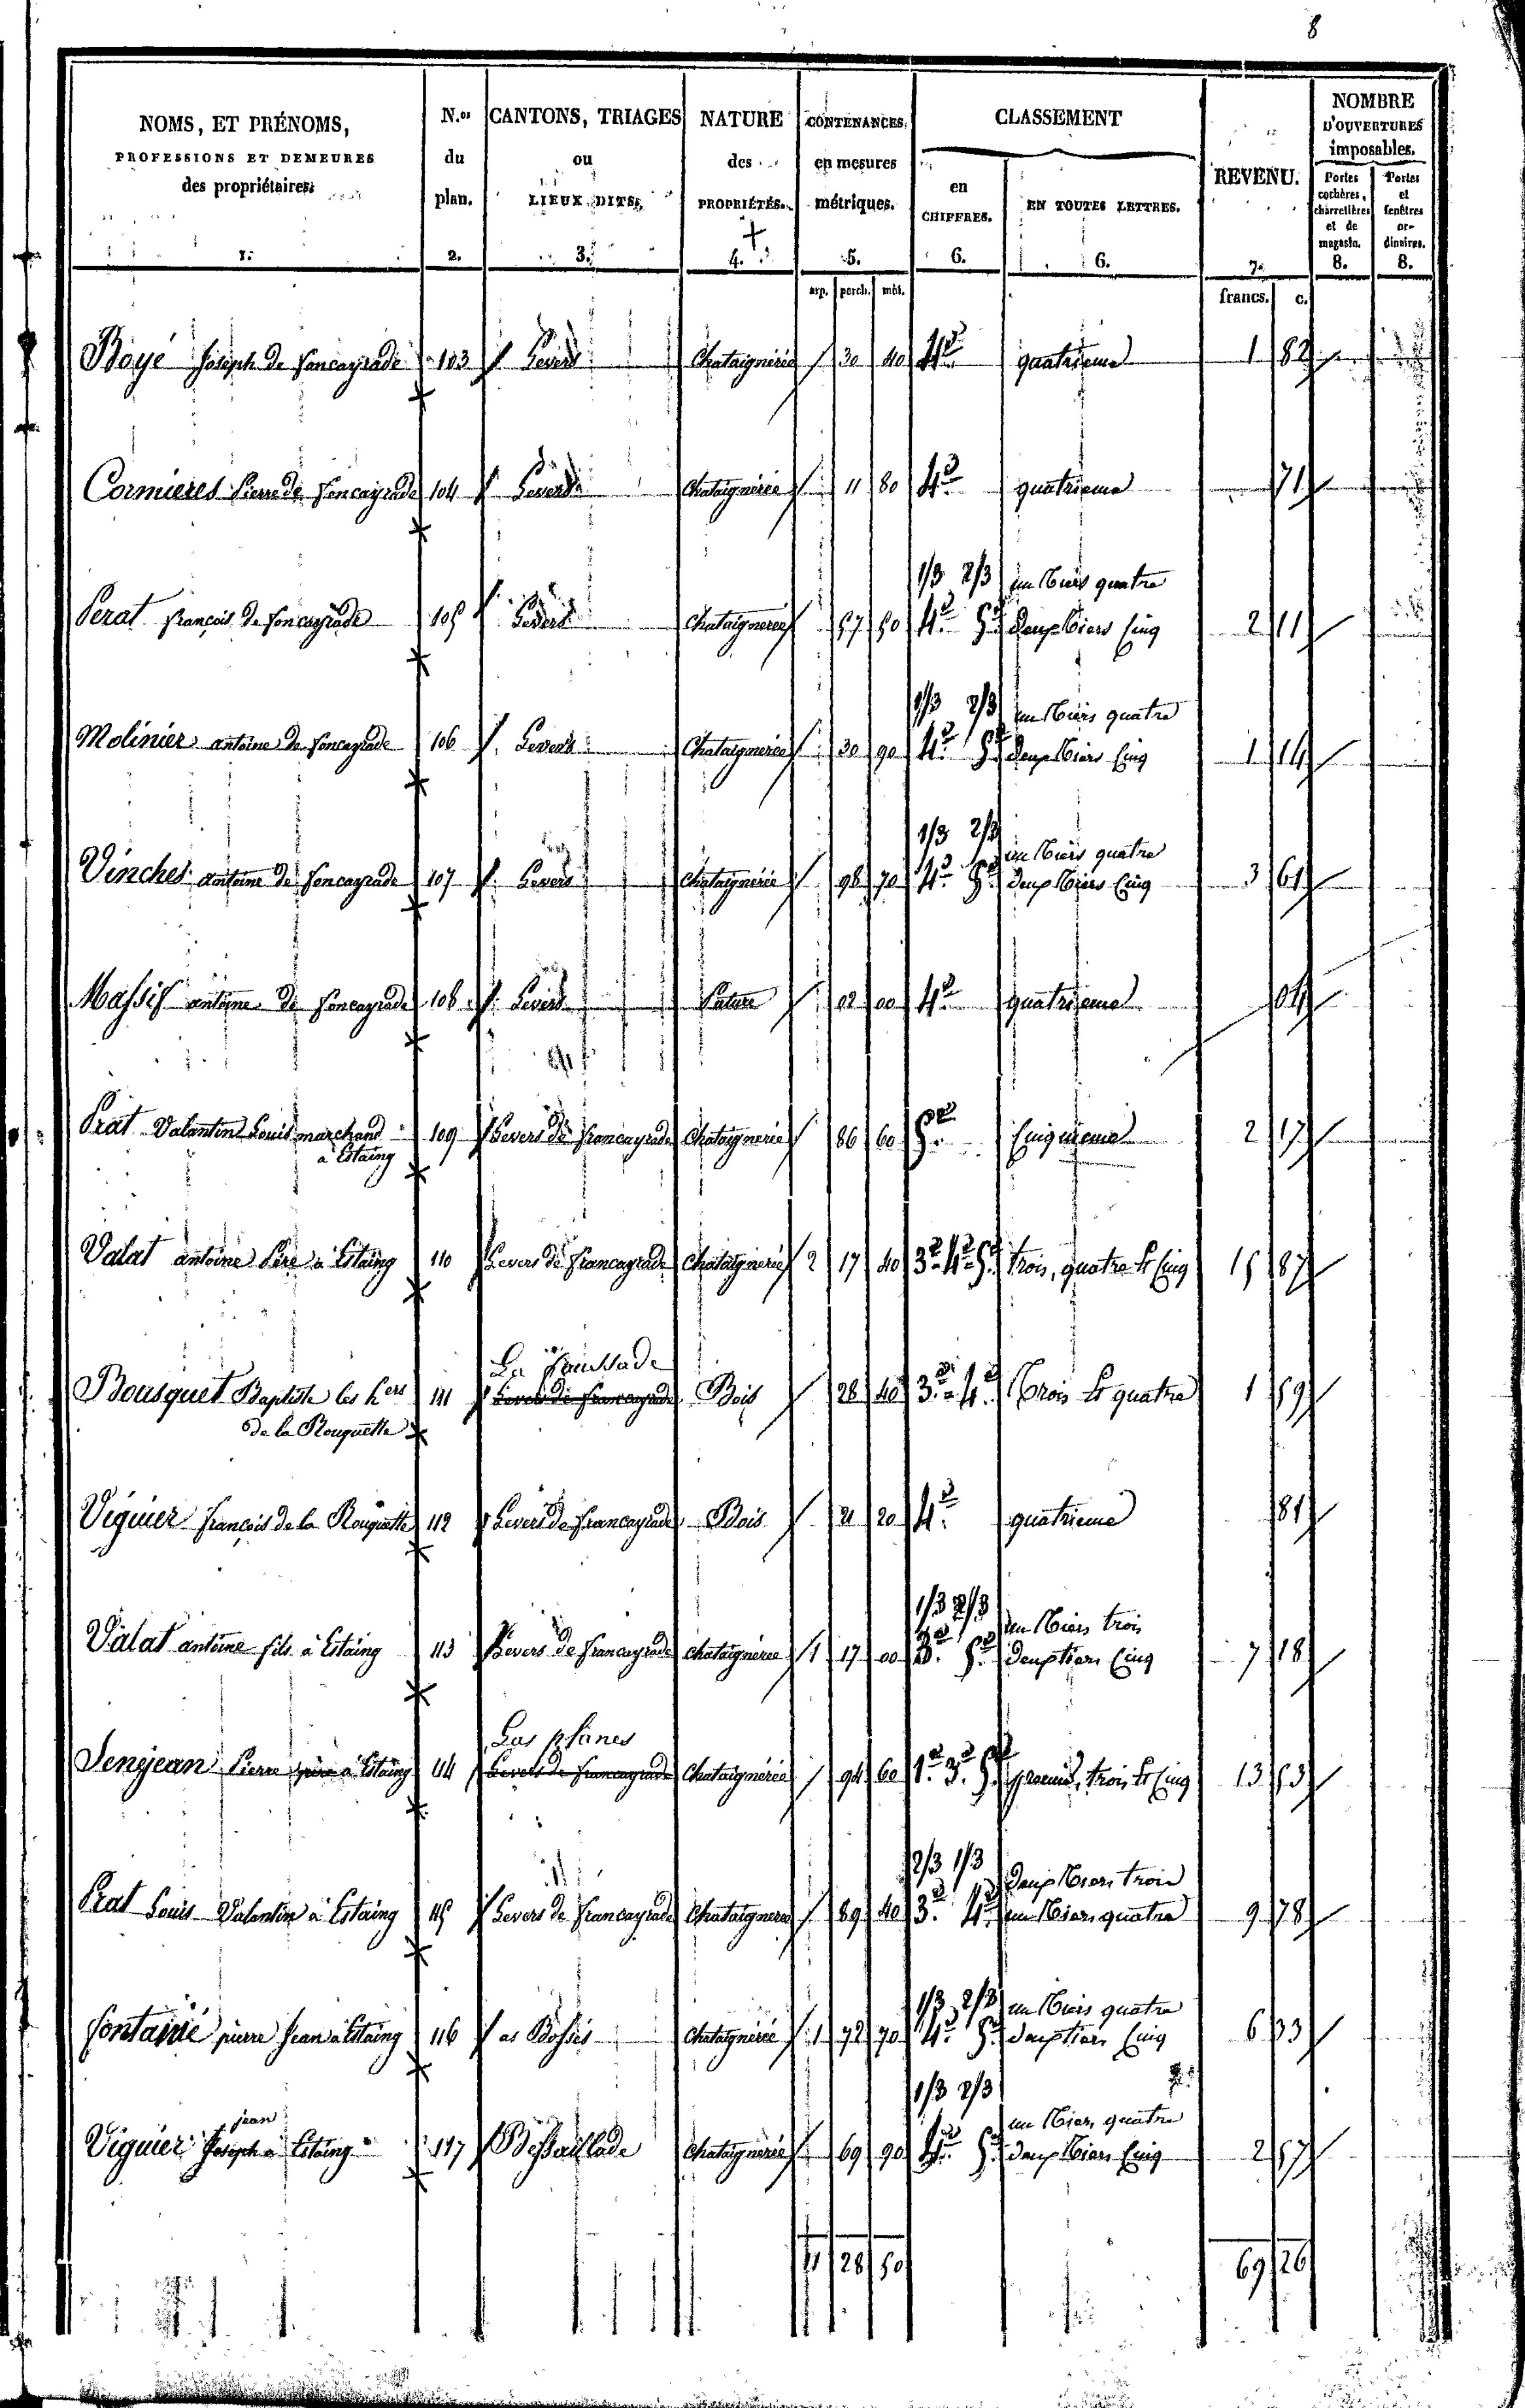 8
NOMS, ET PRÉNOMS, PROFESSIONS ET DEMEURES des propriétaires. 1.
N.os du plan. 2.
CANTONS, TRIAGES ou LIEUX DITS. 3.
NATURE des PROPRIÉTÉS. 4.
CONTENANCES en mesures métriques. 5.
CLASSEMENT
en CHIFFRES. 6.
EN TOUTES LETTRES. 6.
REVENU. 7.
NOMBRE D'OUVERTURES imposables.
Portes cochères, charretières et de magasin. 8.
Portes et fenêtres ordinaires. 8.
arp. perch. mèt. francs. c.
Boyé Joseph de 103 Chataigneraie 30 40 4e quatrieme 1 82
Cormieres Pierre de 104 Chataigneraie 11 80 4e quatrieme 71
1/3 2/3 un tiers quatre
Perat françois de 105 Chataigneraie 57 50 4e 5e deux tiers cinq 2 11
1/3 2/3 un tiers quatre
Molinier antoine de 106 Chataigneraie 30 90 4e 5e deux tiers cinq 1 14
1/3 2/3 un tiers quatre
Vinches antoine de 107 Chataigneraie 98 70 4e 5e deux tiers cinq 3 61
Massif antoine de 108 Pature 02 00 4e quatrieme 04
Prat Valantin Louis marchand 109 Chataigneraie 86 60 5e Cinquieme 2 17
à Estaing
Valat antoine Père à Estaing 110 Chataigneraie 2 17 40 3e 4e 5e trois, quatre et cinq 15 87
La
Bousquet Baptiste les hers 111 Bois 26 40 3e 4e trois et quatre 1 59
de la Rouquette
Viguier françois de la Rouquette 112 Bois 21 20 4e quatrieme 81
1/3 2/3 un tiers trois
Valat antoine fils à Estaing 113 chataigneraie 1 17 00 3e 5e deux tiers cinq 7 18
Las planes
Senejean Pierre à Estaing 114 Chataigneraie 94 60 1e 3e 5e trois et cinq 13 53
2/3 1/3 deux tiers trois
Prat Louis Valentin à Estaing 115 Chataigneraie 89 40 3e 4e un tiers quatre 9 78
1/3 2/3 un tiers quatre
Fontanié pierre Jean à Estaing 116 as Chataigneraie 1 72 70 4e 5e deux tiers cinq 6 33
1/3 2/3
jean un tiers quatre
Viguier Joseph à Estaing 117 Chataigneraie 69 90 4e 5e deux tiers cinq 2 57
11 28 50 69 26